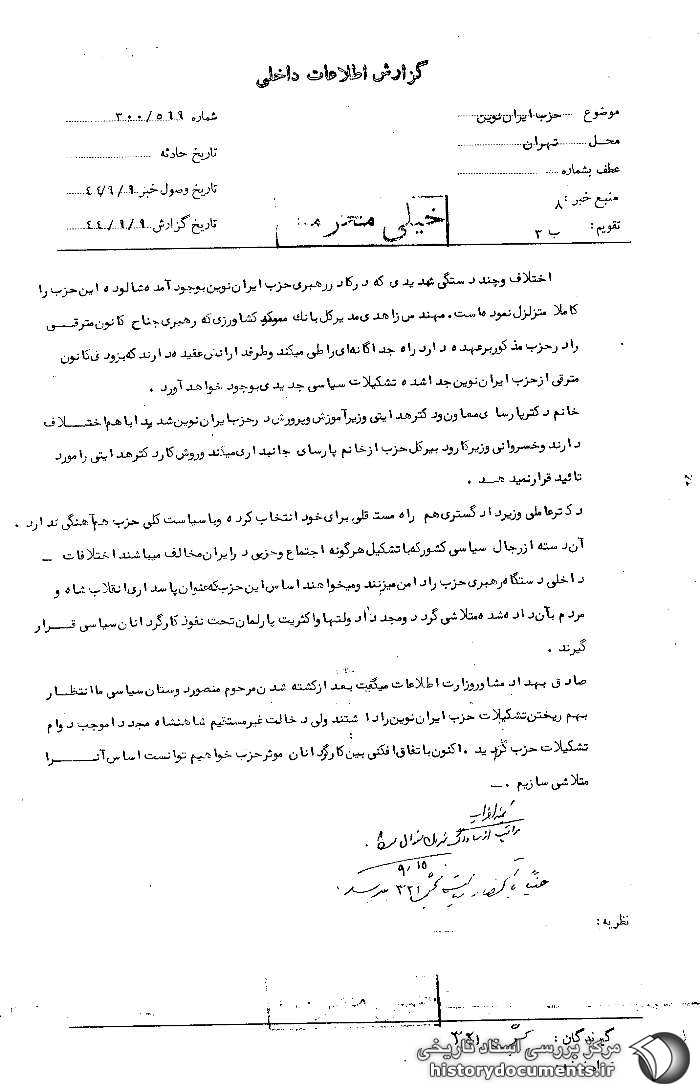 گزارش اطلاعات داخلی
موضوع حزب ایران نوین
شماره ۳۰۰/۵۶۹
محل تهران
تاریخ حادثه
عطف بشماره
تاریخ وصول خبر ۴۴/۹/۹
منبع خبر: ۸
تاریخ گزارش ۴۴/۹/۹
تقویم: ب ۳
خیلی محرمانه
اختلاف و چند دستگی شدیدی که در کادر رهبری حزب ایران نوین بوجود آمده شالوده این حزب را
کاملا متزلزل نموده است. مهندس زاهدی مدیر کل بانک کشاورزی که رهبری جناح کانون مترقی
را در حزب مذکور بر عهده دارد راه جداگانه‌ای را طی میکند و طرفدارانش عقیده دارند که بزودی کانون
مترقی از حزب ایران نوین جدا شده تشکیلات سیاسی جدیدی بوجود خواهد آورد.
خانم دکتر پارسای معاون و دکتر هدایتی وزیر آموزش و پرورش در حزب ایران نوین شدیدا با هم اختلاف
دارند و خسروانی وزیر کار و دبیر کل حزب از خانم پارسای جانبداری میکند و روش کار دکتر هدایتی را مورد
تائید قرار نمیدهد.
دکتر عاملی وزیر دادگستری هم راه مستقلی برای خود انتخاب کرده و با سیاست کلی حزب هم آهنگی ندارد.
آن دسته از رجال سیاسی کشور که با تشکیل هرگونه اجتماع و حزبی در ایران مخالف میباشند اختلافات
داخلی دستگاه رهبری حزب را دامن میزنند و میخواهند اساس این حزب که عنوان پاسداری انقلاب شاه و
مردم بآن داده شده متلاشی گردد و مجددا دولتها و اکثریت پارلمان تحت نفوذ کارگردانان سیاسی قرار
گیرند.
صادق بهداد مشاور وزارت اطلاعات میگفت بعد از کشته شدن مرحوم منصور دوستان سیاسی ما انتظار
بهم ریختن تشکیلات حزب ایران نوین را داشتند ولی دخالت غیر مستقیم شاهنشاه مجددا موجب دوام
تشکیلات حزب گردید. اکنون با نفاق افکنی بین کارگردانان موثر حزب خواهیم توانست اساس آن را
متلاشی سازیم.
مراتب از ساواک تهران سوال شد.
۹/۱۵
نظریه:
گیرندگان: ۳۲۱
مرکز بررسی اسناد تاریخی
historydocuments.ir